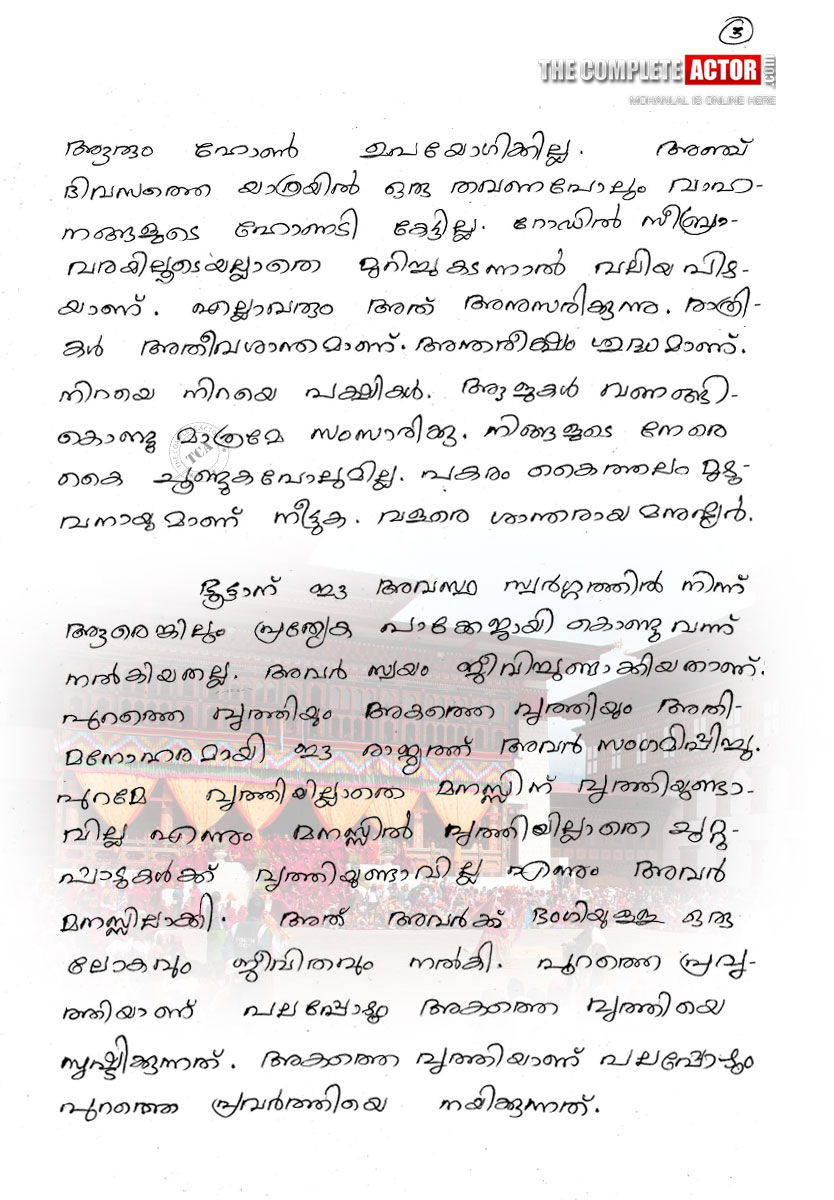 3
THE COMPLETE ACTOR .COM
MOHANLAL IS ONLINE HERE
ആരും ഹോൺ ഉപയോഗിക്കില്ല. അഞ്ച്
ദിവസത്തെ യാത്രയിൽ ഒരു തവണപോലും വാഹ-
നങ്ങളുടെ ഹോണടി കേട്ടില്ല. റോഡിൽ സീബ്രാ-
വരയിലൂടെയല്ലാതെ മുറിച്ചുകടന്നാൽ വലിയ പിഴ-
യാണ്. എല്ലാവരും അത് അനുസരിക്കുന്നു. രാത്രി-
കൾ അതീവശാന്തമാണ്. അന്തരീക്ഷം ശുദ്ധമാണ്.
നിറയെ നിറയെ പക്ഷികൾ. ആളുകൾ വണങ്ങി-
കൊണ്ടു മാത്രമേ സംസാരിക്കൂ. നിങ്ങളുടെ നേരെ
കൈ ചൂണ്ടുകപോലുമില്ല. പകരം കൈത്തലം മുഴു-
വനായുമാണ് നീട്ടുക. വളരെ ശാന്തരായ മനുഷ്യർ.
ഭൂട്ടാന് ഈ അവസ്ഥ സ്വർഗ്ഗത്തിൽ നിന്ന്
ആരെങ്കിലും പ്രത്യേക പാക്കേജായി കൊണ്ടു വന്ന്
നൽകിയതല്ല. അവർ സ്വയം ജീവിച്ചുണ്ടാക്കിയതാണ്.
പുറത്തെ വൃത്തിയും അകത്തെ വൃത്തിയും അതി-
മനോഹരമായി ഈ രാജ്യത്ത് അവർ സംഗമിപ്പിച്ചു.
പുറമേ വൃത്തിയില്ലാതെ മനസ്സിന് വൃത്തിയുണ്ടാ-
വില്ല എന്നും മനസ്സിൽ വൃത്തിയില്ലാതെ ചുറ്റു-
പാടുകൾക്ക് വൃത്തിയുണ്ടാവില്ല എന്നും അവർ
മനസ്സിലാക്കി. അത് അവർക്ക് ഭംഗിയുള്ള ഒരു
ലോകവും ജീവിതവും നൽകി. പുറത്തെ പ്രവൃ-
ത്തിയാണ് പലപ്പോഴും അകത്തെ വൃത്തിയെ
സൃഷ്ടിക്കുന്നത്. അകത്തെ വൃത്തിയാണ് പലപ്പോഴും
പുറത്തെ പ്രവർത്തിയെ നയിക്കുന്നത്.